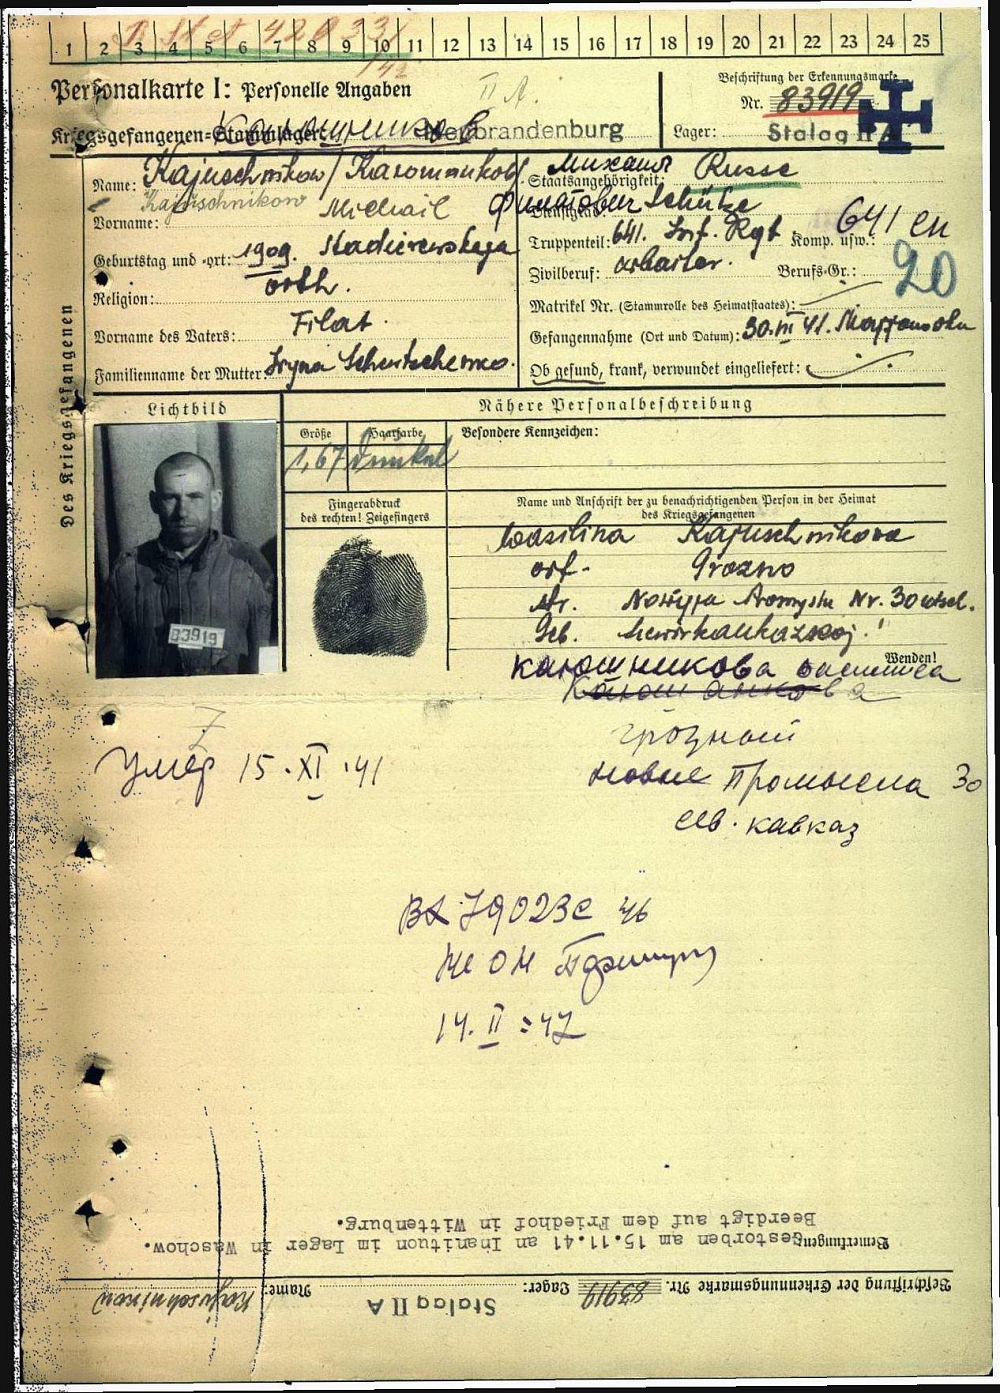 1 2 3 4 5 6 7 8 9 10 11 12 13 14 15 16 17 18 19 20 21 22 23 24 25
Personalkarte I: Personelle Angaben
II A.
Beschriftung der Erkennungsmarke
Nr. 83919
Kriegsgefangenen-Stammlager: Neubrandenburg
Lager: Stalag II A
Des Kriegsgefangenen
Name: Kajuschnikow / Karomnikow
Kajuschnikow
Михаил
Филатович
Staatsangehörigkeit: Russe
Vorname: Michail
Dienstgrad: Schütze
Truppenteil: 641. Inf. Rgt. Komp. usw.: 641 сп
Geburtstag und -ort: 1909.
Zivilberuf: arbeiter. Berufs-Gr.: 20
Religion: orth.
Matrikel Nr. (Stammrolle des Heimatstaates):
Vorname des Vaters: Filat
Gefangennahme (Ort und Datum): 30. III 41.
Familienname der Mutter: Iryna
Ob gesund, krank, verwundet eingeliefert:
Lichtbild
Nähere Personalbeschreibung
Größe Haarfarbe Besondere Kennzeichen:
1,67 dunkel
Fingerabdruck
des rechten! Zeigefingers
Name und Anschrift der zu benachrichtigenden Person in der Heimat
des Kriegsgefangenen
Wasilina Kajuschnikowa
ort- Grozno
Str. Nowyja Promysla Nr. 30
Geb.
83919
Wenden!
Каюшникова Василиса
грозный
новые Промысела 30
сев. кавказ
Умер 15.XI.41
14.II.47
Bemerkungen: Gestorben am 15.11.41 an Inanituon im Lager in Waschow.
Beerdigt auf dem Friedhof in Wittenburg.
Beschriftung der Erkennungsmarke Nr. 83919 Lager: Stalag II A Name: Kajuschnikow